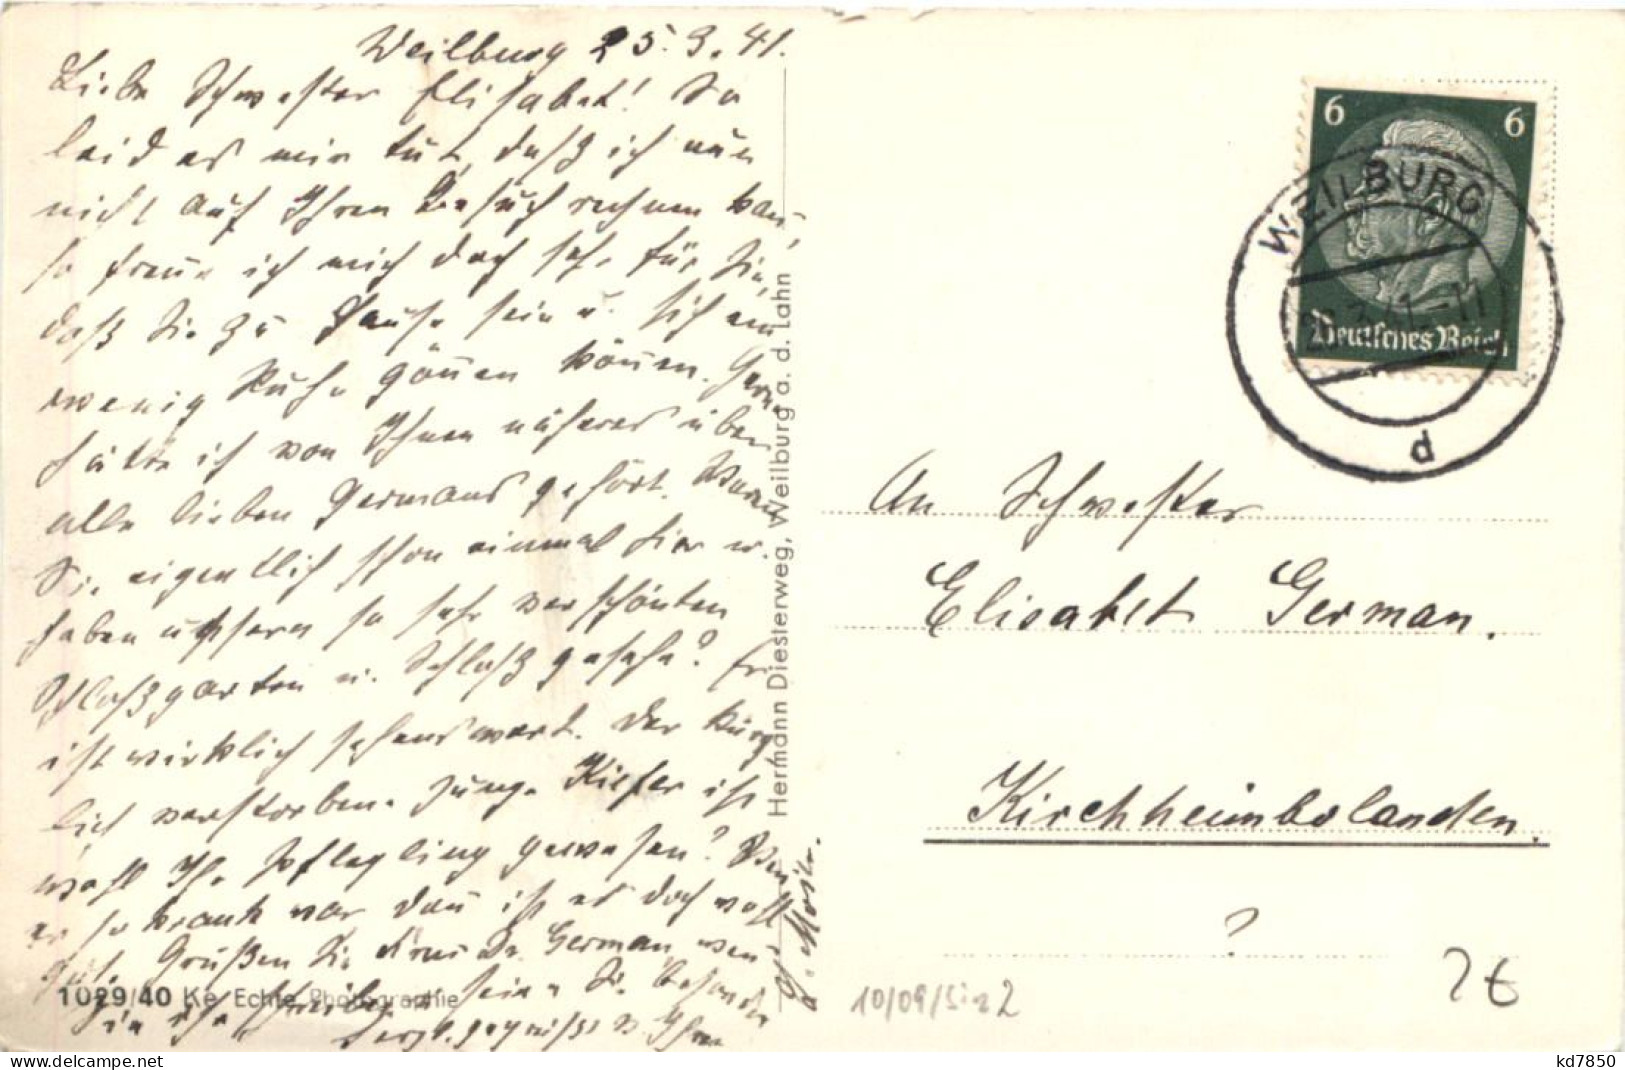 Weilburg 25.3.41.
Liebe Schwester Elisabet! So
leid es mir tut, daß ich nun
nicht auf Ihren Besuch rechnen kann,
so freue ich mich doch sehr für Sie,
daß Sie zu Hause sein u. sich ein
wenig Ruhe gönnen können. Gerne
hätte ich von Ihnen näheres über
alle lieben Germans gehört. Waren
Sie eigentlich schon einmal hier u.
haben unsern so sehr verschönten
Schloßgarten u. Schloß gesehen? Er
ist wirklich sehenswert. Der kürz-
lich verstorbene junge Kiefer ist
wohl Ihr Pflegling gewesen? Wenn
er so krank war dann ist es doch wohl
gut. Grüßen Sie Frau Dr. German, wenn
Sie ihr schreiben seien Sie besonders
herzl. gegrüßt v. Ihrer
Hermann Diesterweg, Weilburg a. d. Lahn
1029/40 Ke Echte Photographie
6 6
Deutsches Reich
WEILBURG
d
An Schwester
Elisabet German.
Kirchheimbolanden.
?
10/09/
2€
kd7850